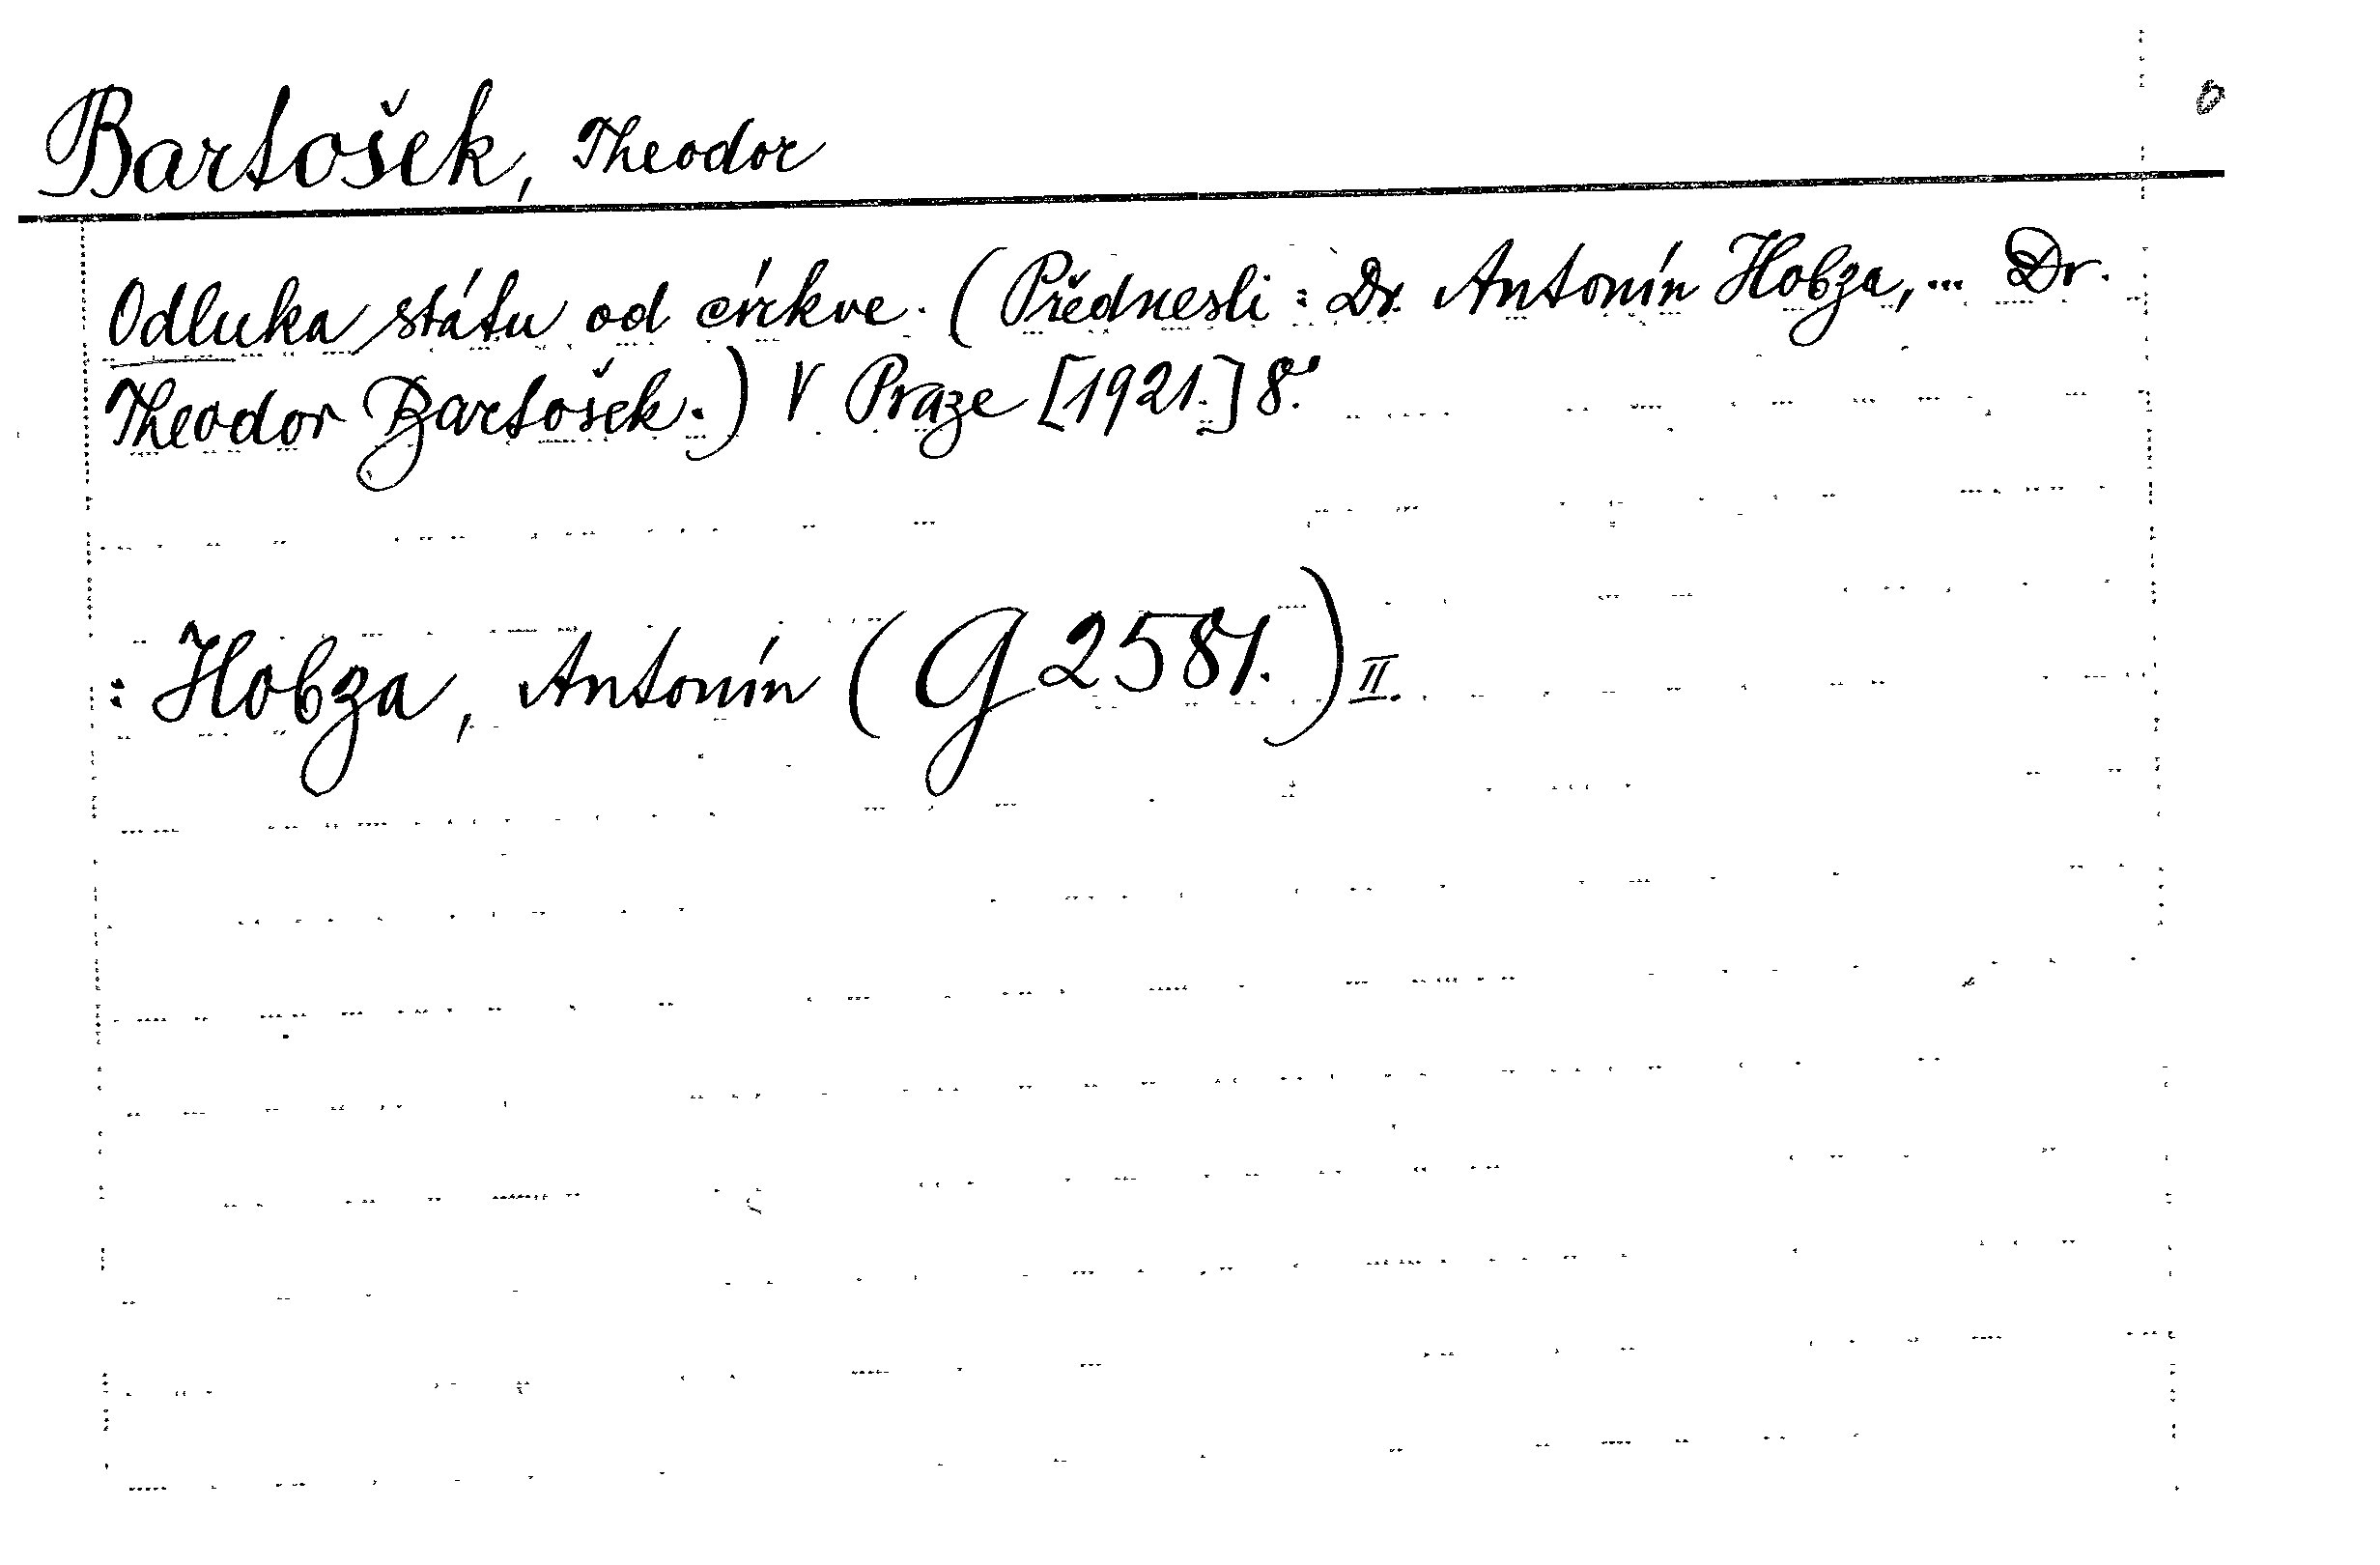 Bartošek, Theodor
Odluka státu od církve. (Přednesli: Dr. Antonín Hobza,... Dr.
Theodor Bartošek.) V Praze [1921.] 8.°
: Hobza, Antonín (G 2581.) II.